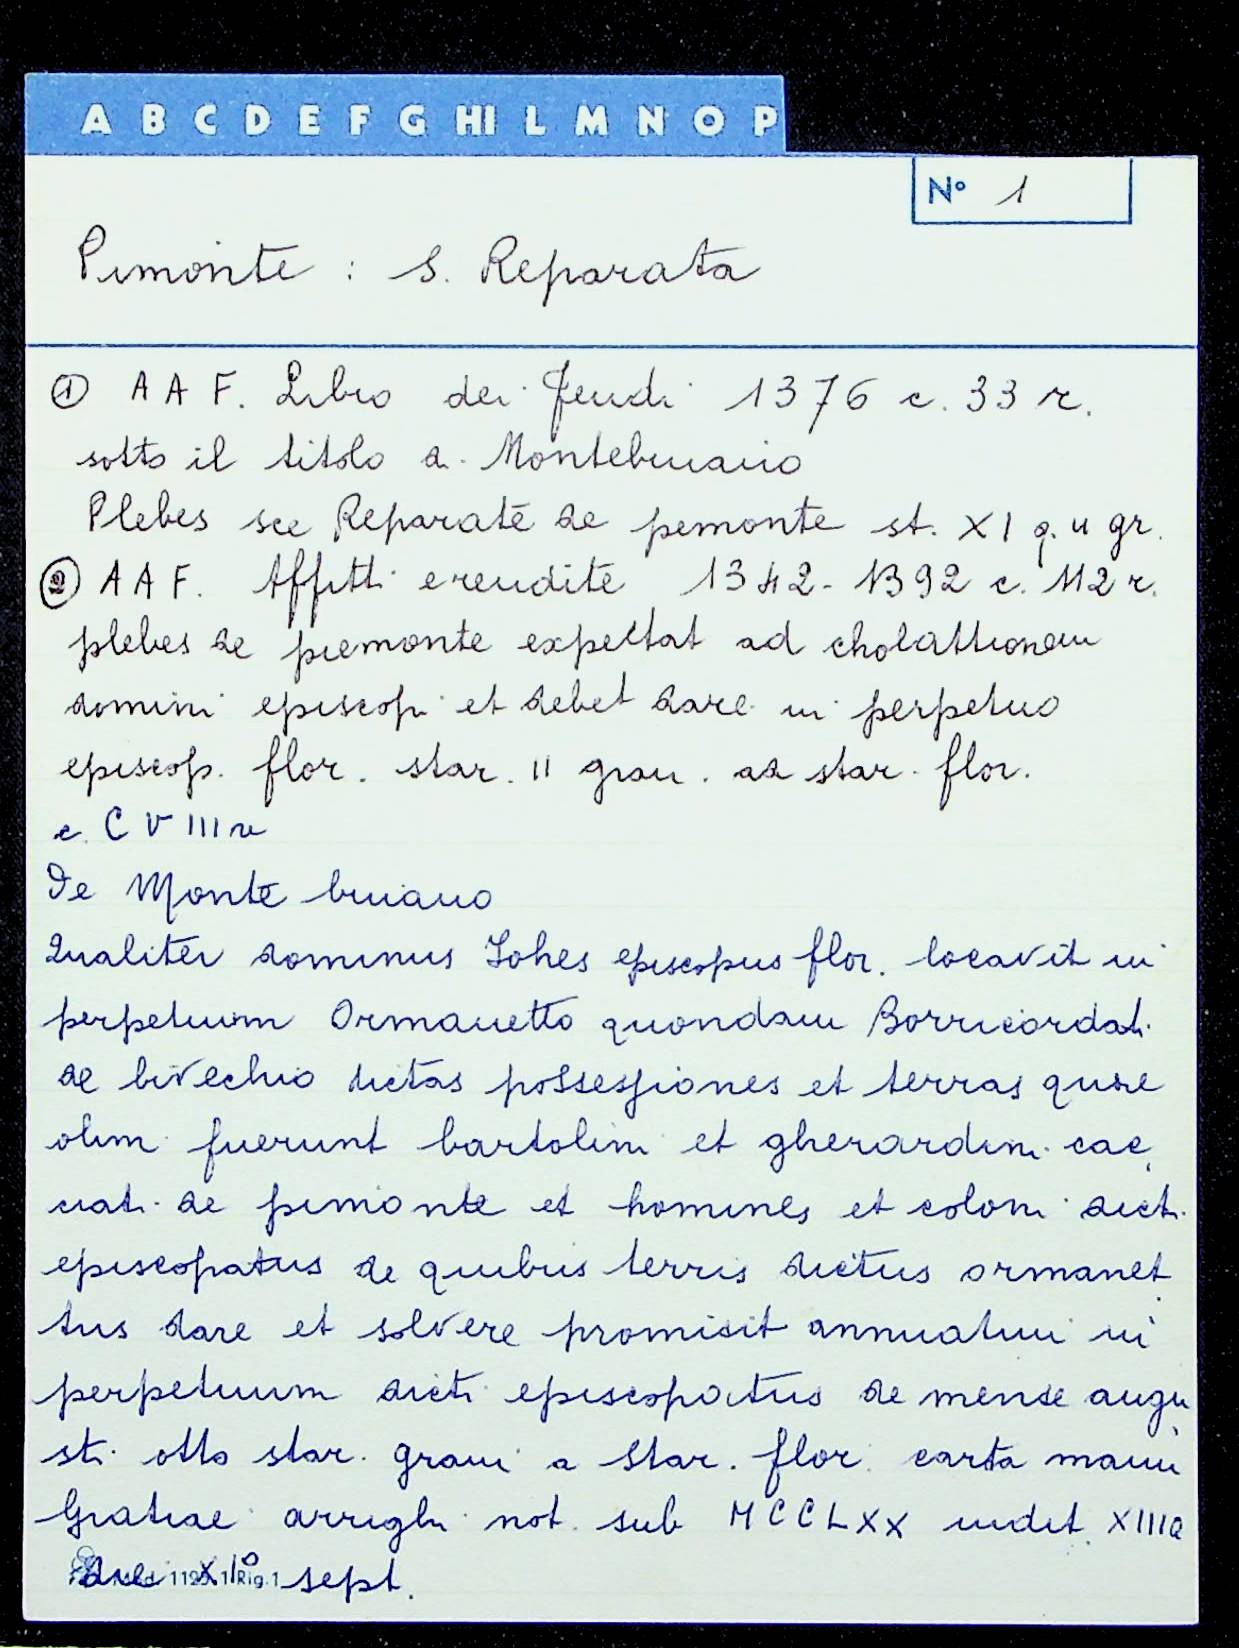 A B C D E F G HI L M N O P
Nº 1
Pimonte : S. Reparata
① A A F. Libro dei feudi 1376 c. 33 r.
sotto il titolo a. Montebuiano
Plebes sce Reparate de pemonte st. XI q. II gr.
② A A F. Affitti e rendite 1342-1392 c. 112 r.
plebes de piemonte expettat ad cholattionem
domini episcopi et debet dare in perpetuo
episcop. flor. star. II gran. ad star. flor.
c. C V III r
De Monte buiano
Qualiter dominus Johes episcopus flor. locavit in
perpetuum Ormanetto quondam Borricordati
de bivechio dictas possessiones et terras quae
olim fuerunt bartolini et gherardini cac
ciati de pimonte et homines et coloni dicti
episcopatus de quibus terris dictus ormanet
tus dare et solvere promisit annuatim in
perpetuum dicti episcopatus de mense augu
sti otto star. grani a star. flor. carta manu
Gratiae arrighi not. sub MCCLXX indit. XIIIa
die XIº sept.
Mod. 1129.1 Rig.1